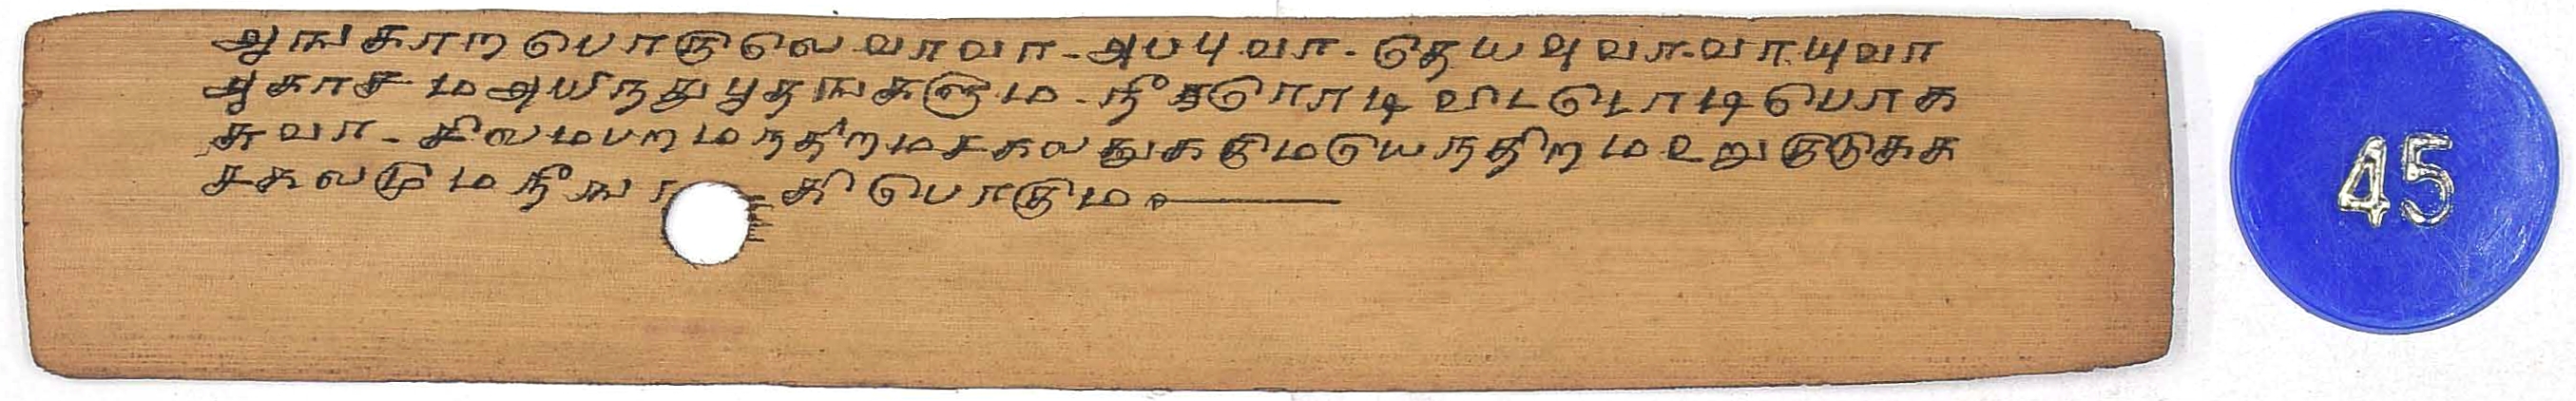 ஆஙகாற பொருளெ வாவா - அபபு வா - தெயவு வா - வாயுவா
ஆகாசம அயிநது பூதஙகளும - நீககொாடி விடடொடி பொக
சுவா - சிவமபறமநதிறம சகலதுககுமயெநதிறம உறு குடுகக
சகலமும நீஙகி பொகும
45